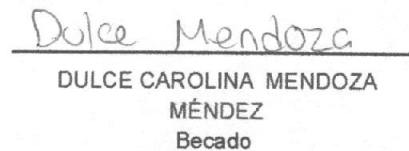 Dulce Mendoza
DULCE CAROLINA MENDOZA
MÉNDEZ
Becado